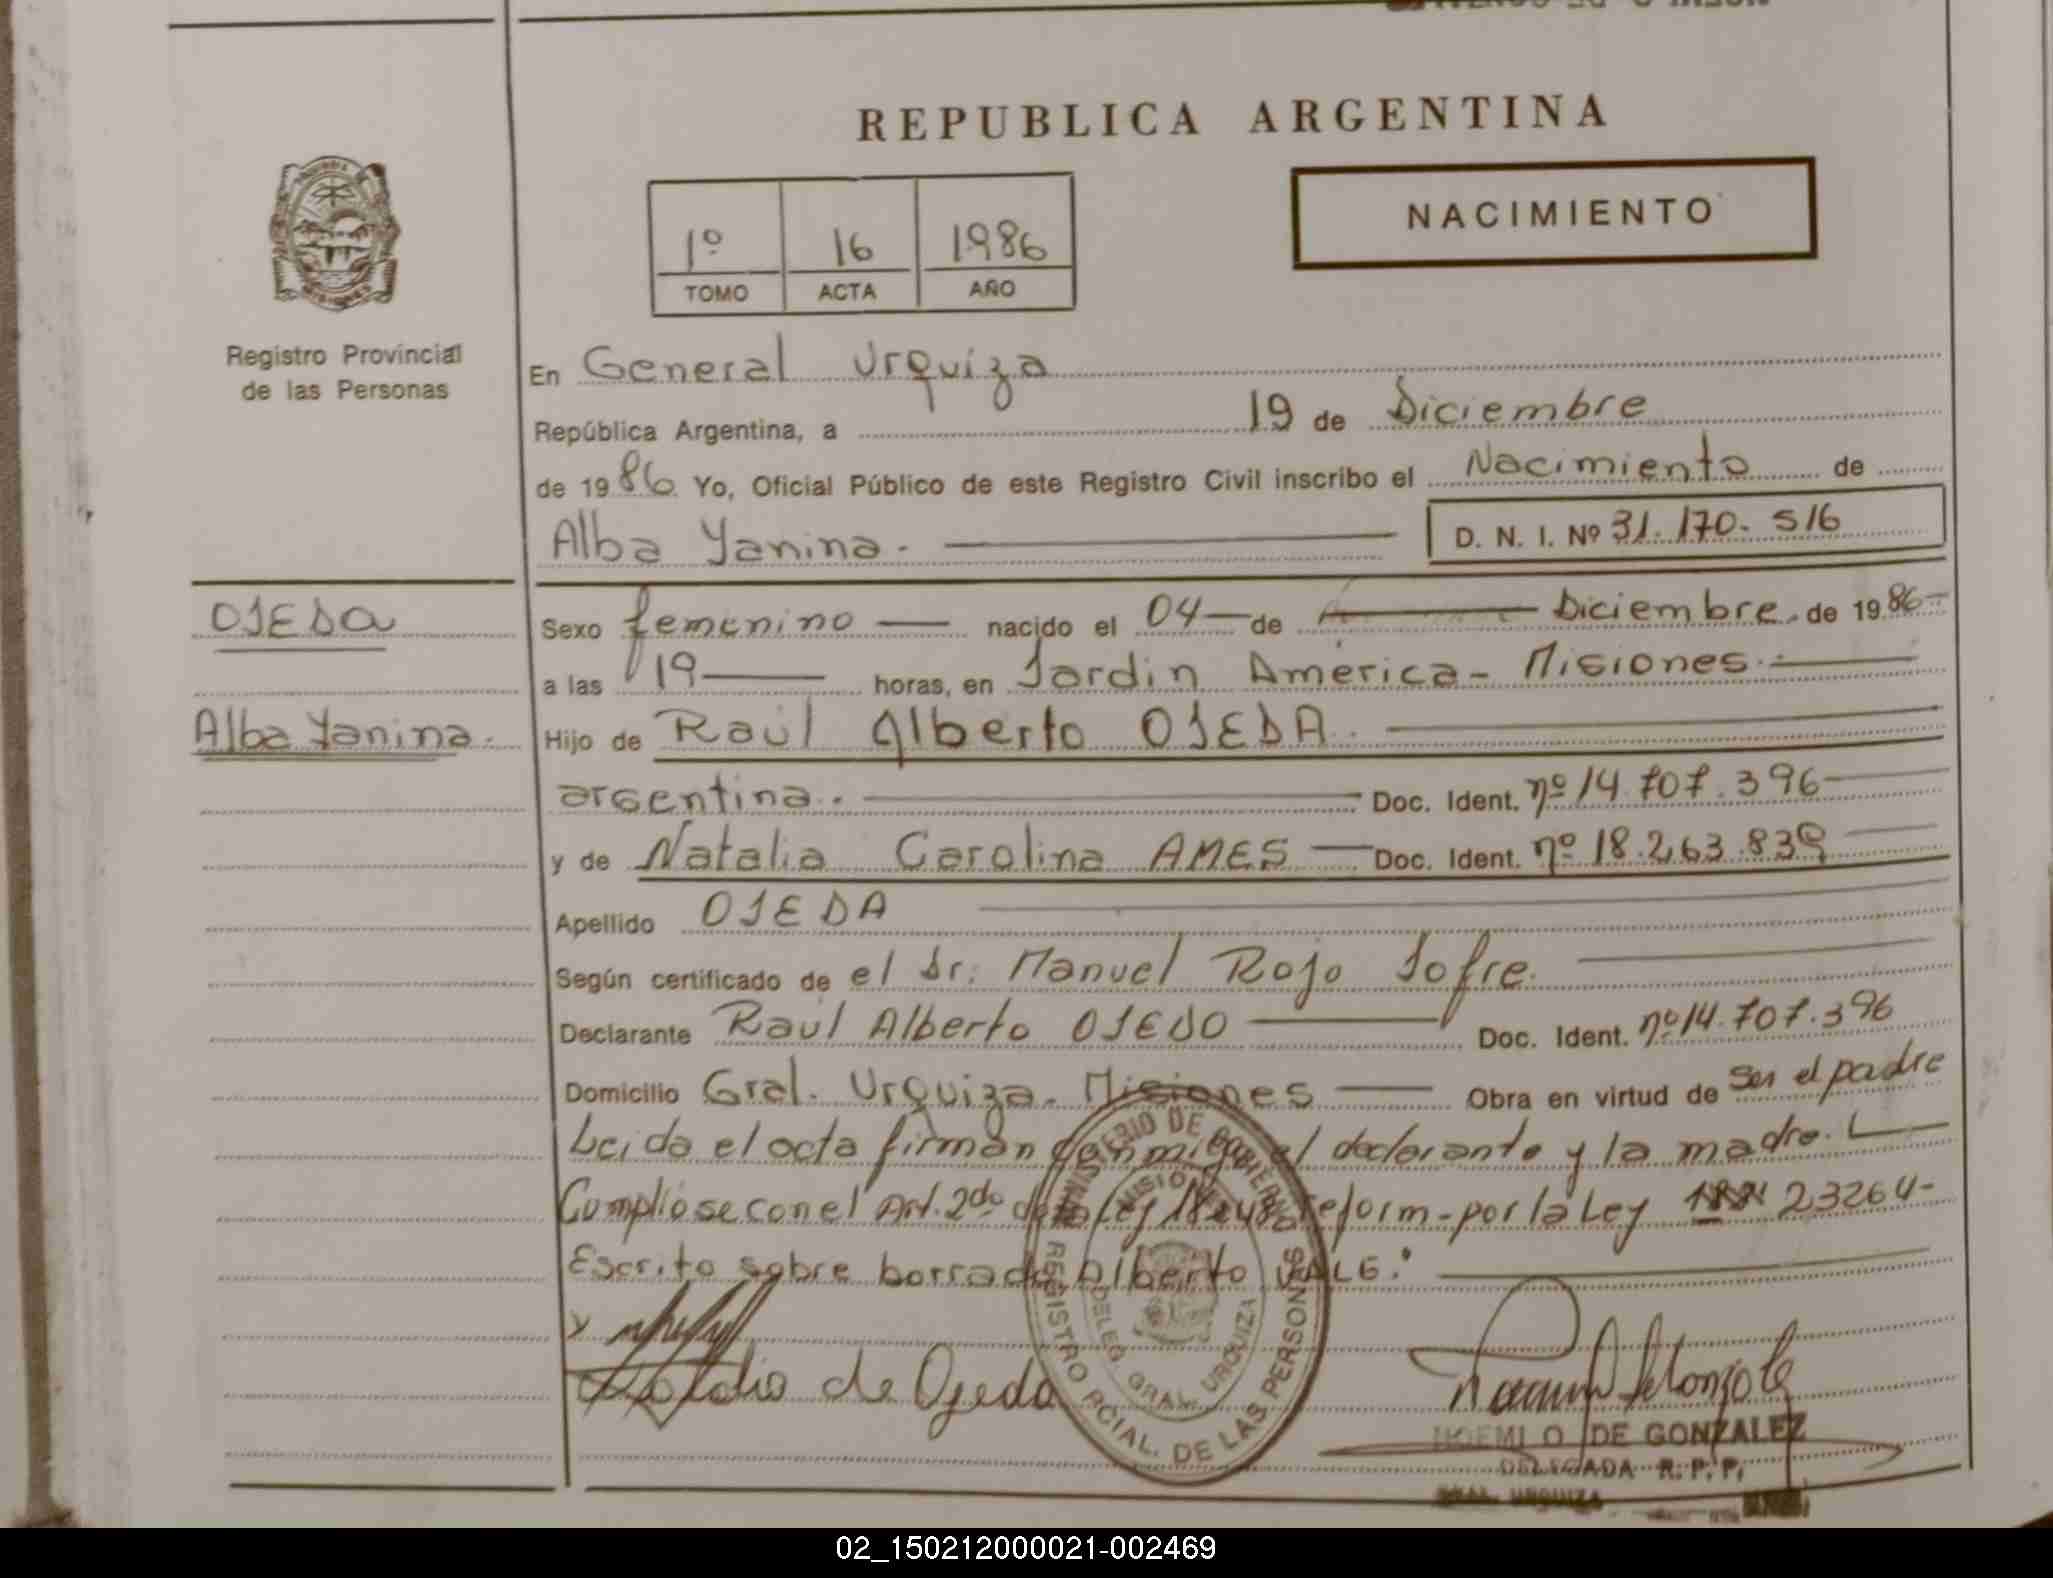 REPUBLICA ARGENTINA
NACIMIENTO
1º 16 1986
TOMO ACTA AÑO
MISIONES
Registro Provincial
de las Personas
En General Urquiza
República Argentina, a 19 de Diciembre
de 1986 Yo, Oficial Público de este Registro Civil inscribo el Nacimiento de
Alba Yanina.
D. N. I. Nº 31.170.516
OJEDA
Alba Yanina.
Sexo femenino nacido el 04 de Diciembre. de 1986
a las 19 horas, en Jardin América - Misiones.
Hijo de Raúl Alberto OJEDA.
argentina. Doc. Ident. nº 14.707.396
y de Natalia Carolina AMES Doc. Ident. nº 18.263.839
Apellido OJEDA
Según certificado de el Dr. Manuel Rojo Jofre.
Declarante Raúl Alberto OJEDO Doc. Ident. nº 14.707.396
Domicilio Gral. Urquiza. Misiones Obra en virtud de ser el padre
Leida el acta firman conmigo el declarante y la madre.
Cumpliose con el Art. 2do de la Ley 18248 reform-por la Ley 23264-
Escrito sobre borrado Alberto VALE:
MINISTERIO DE GOBIERNO
MISIONES
REGISTRO PCIAL. DE LAS PERSONAS
DELEG. GRAL. URQUIZA
de Ojeda
NOEMI O. DE GONZALEZ
DELEGADA R. P. P.
GRAL. URQUIZA
02_150212000021-002469